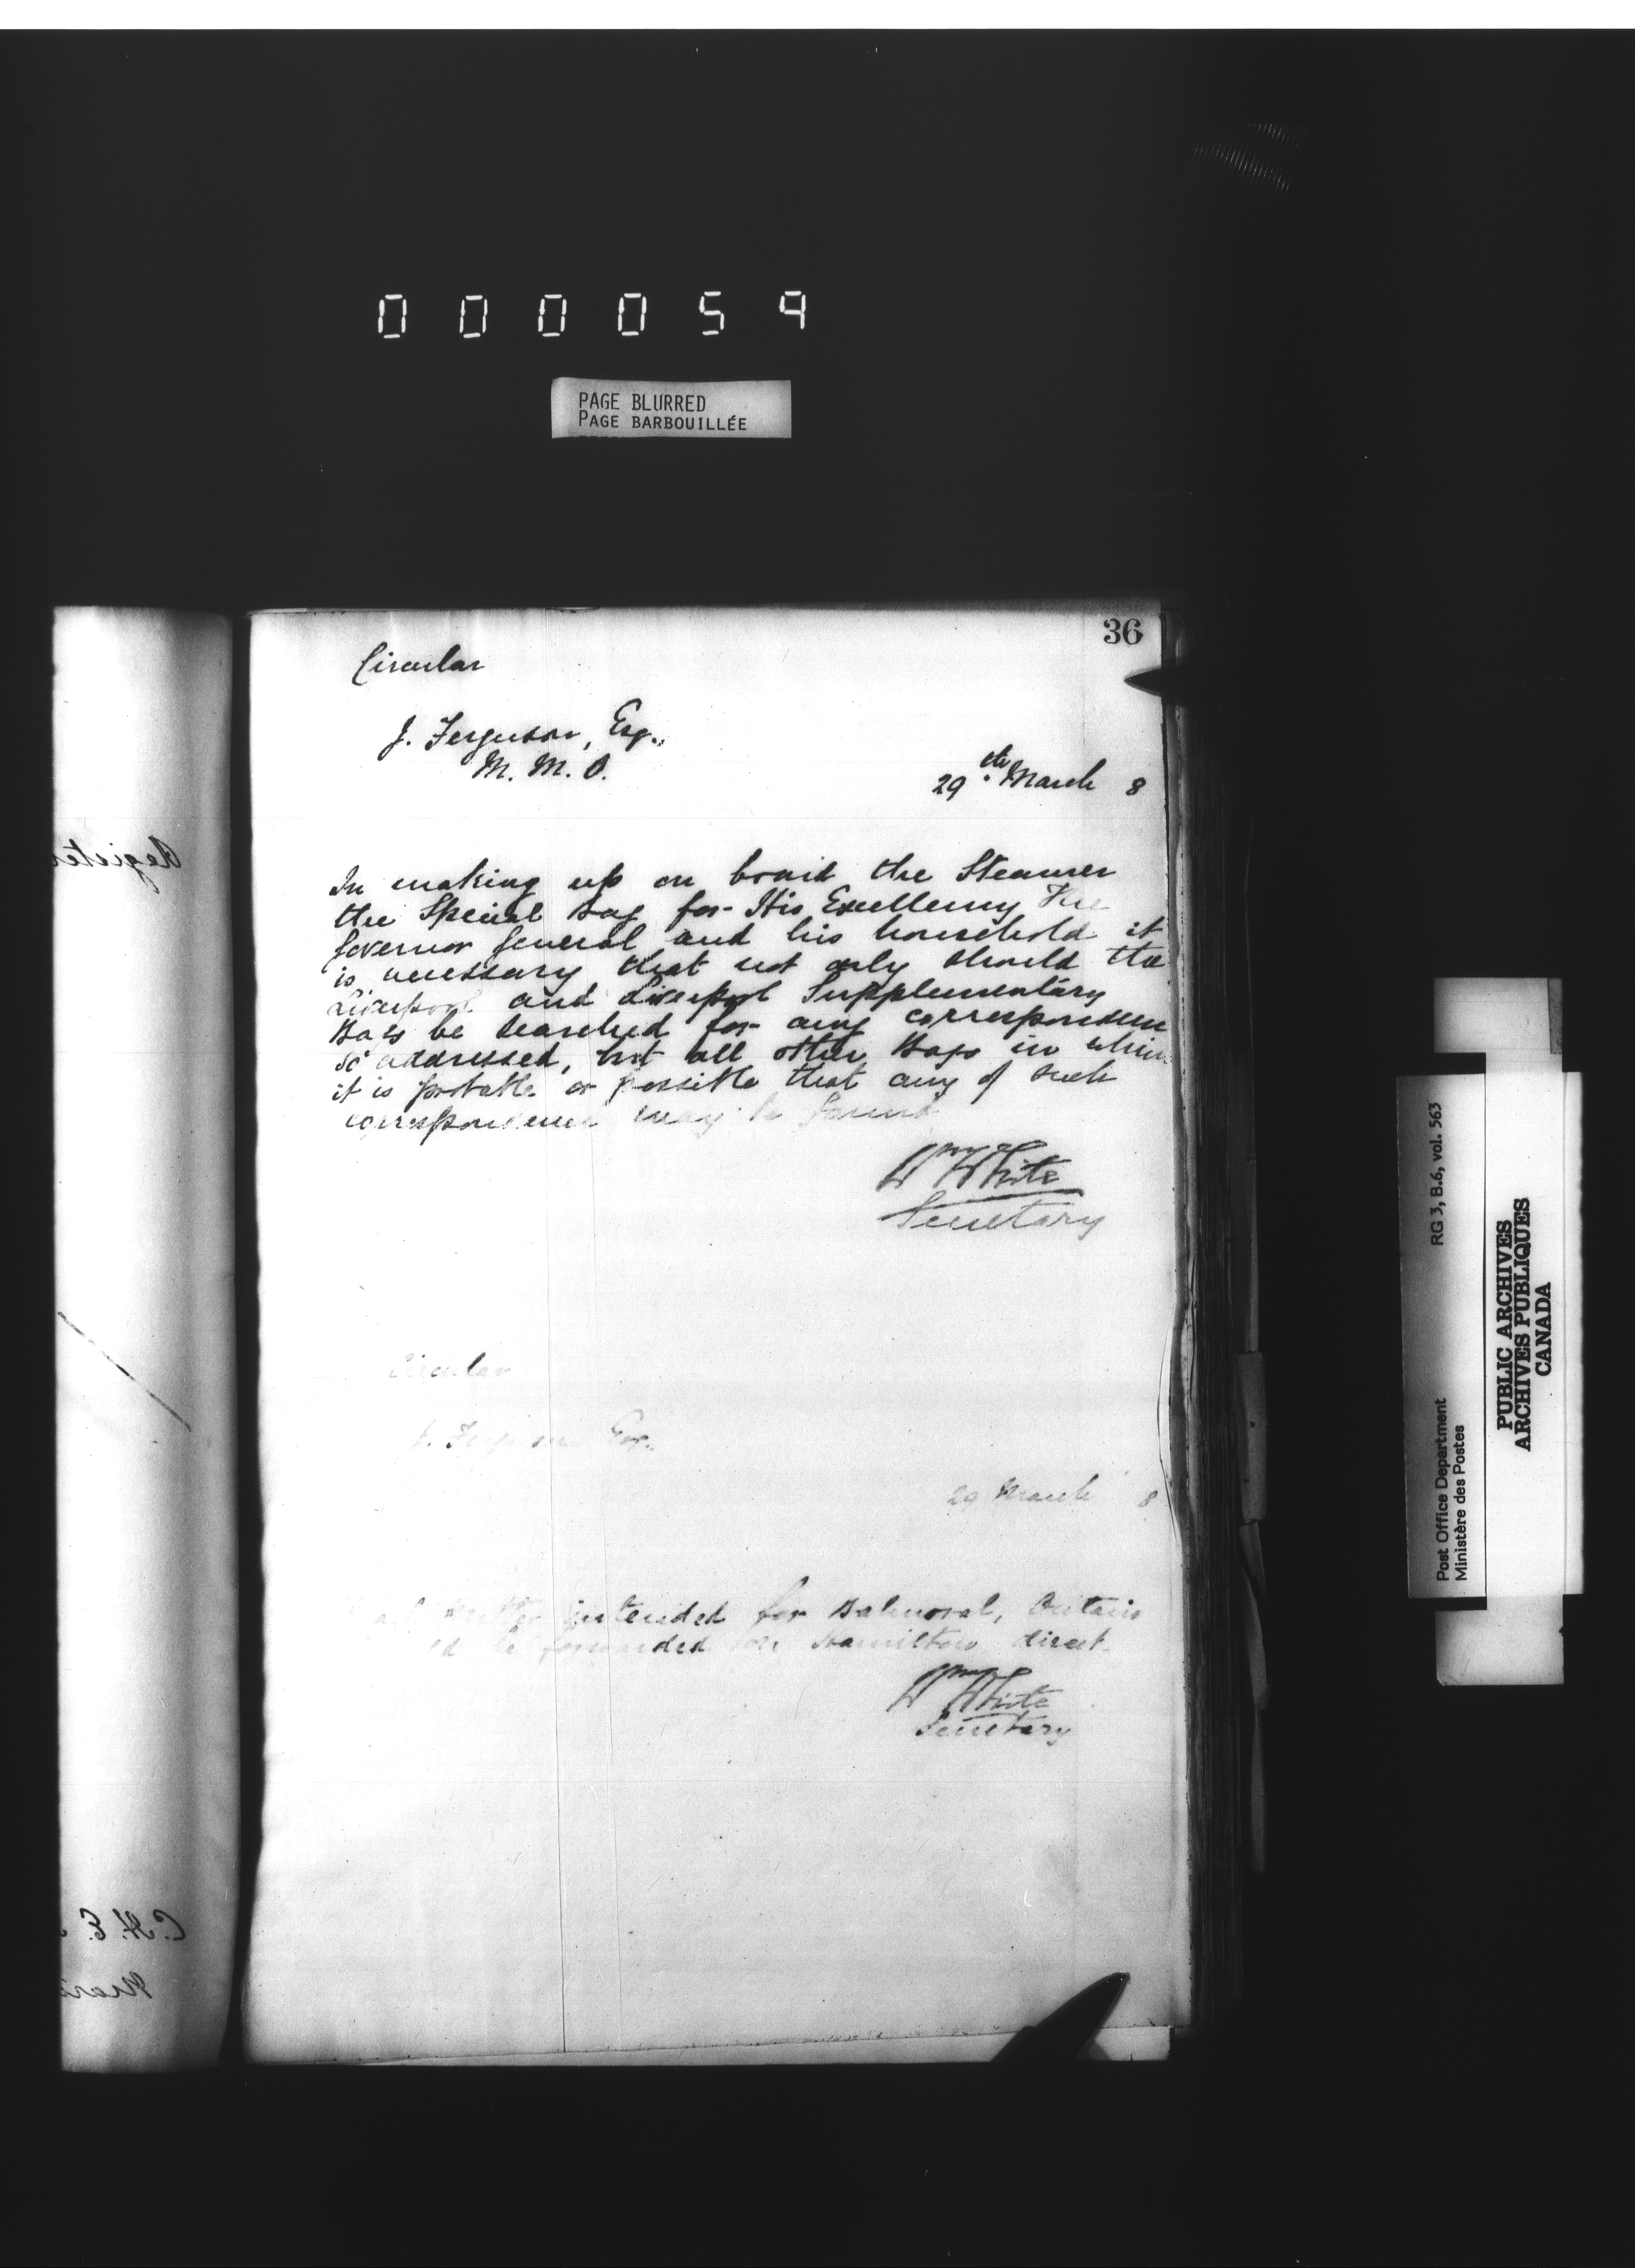 000059
PAGE BLURRED
PAGE BARBOUILLÉE
36
Circular
J. Ferguson, Esq.,
M. M. O.
29th March 8
In making up on board the Steamer
the Special Bag for His Excellency The
Governor General and his household it
is necessary that not only should the
Liverpool and Liverpool Supplementary
Bags be searched for any correspondence
so addressed, but all other Bags in which
it is probable or possible that any of such
correspondence may be found
Wm White
Secretary
Circular
J. Ferguson Esq.,
29 March 8
matter intended for Balmoral, Ontario
be forwarded Hamilton direct.
Wm White
Secretary
Register
C. H. E.
RG 3, B.6, vol. 563
Post Office Department
Ministère des Postes
PUBLIC ARCHIVES
ARCHIVES PUBLIQUES
CANADA